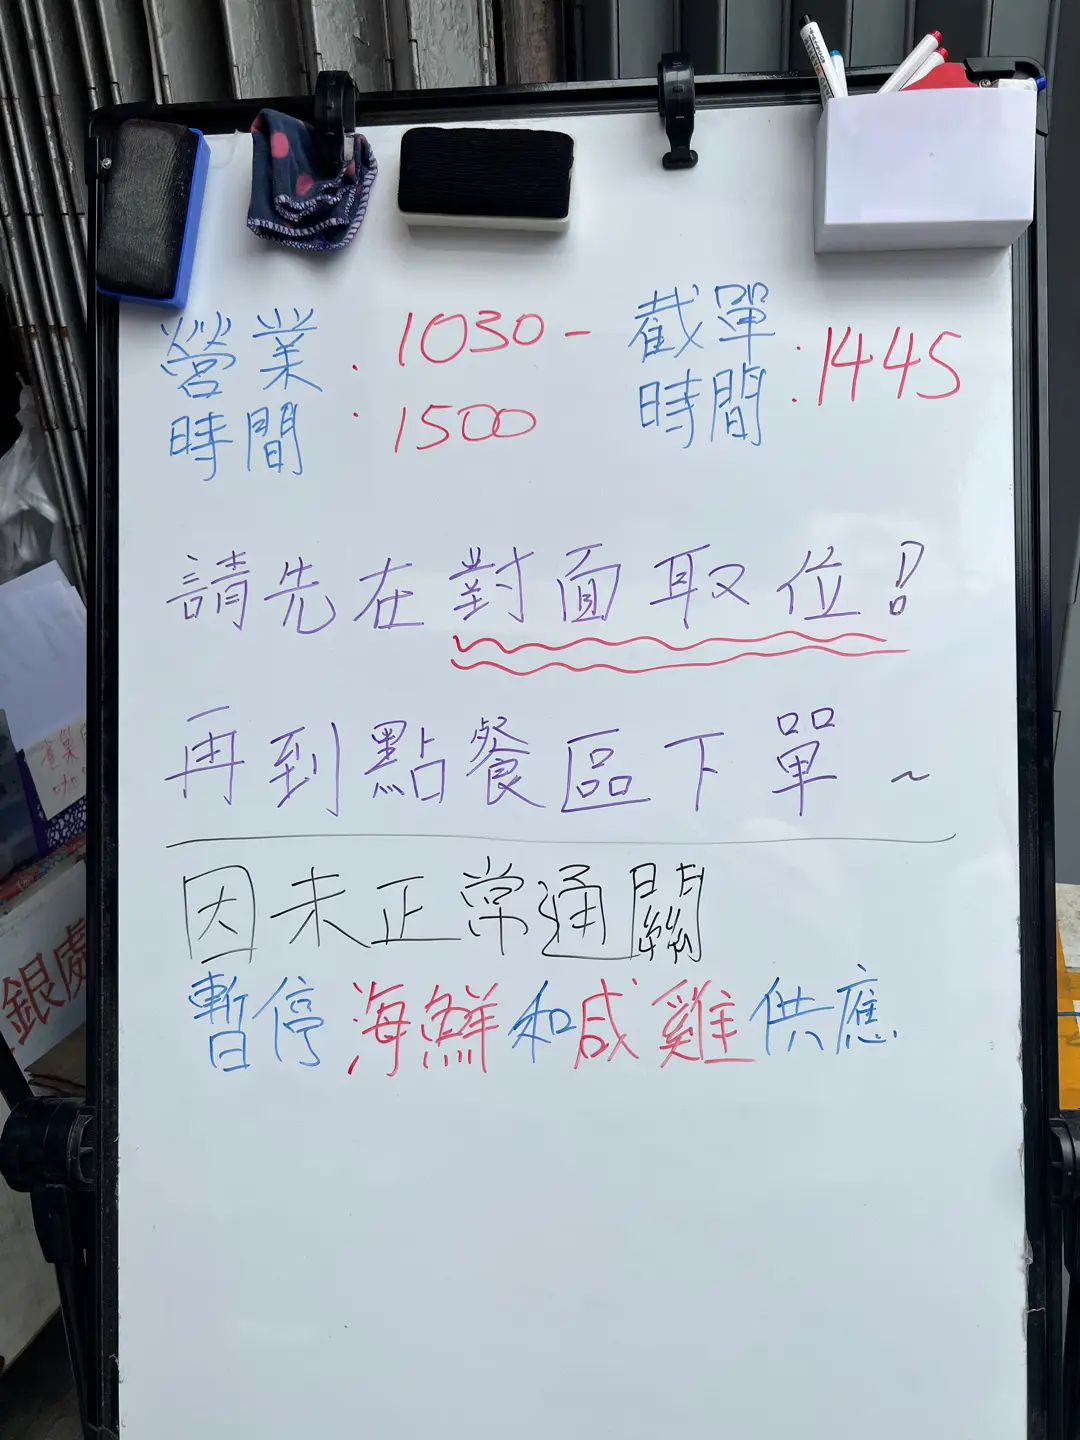 營業時間：1030-1500
截單時間：1445
請先在對面取位！
再到點餐區下單～
因未正常通關
暫停海鮮和咸雞供應
銀處